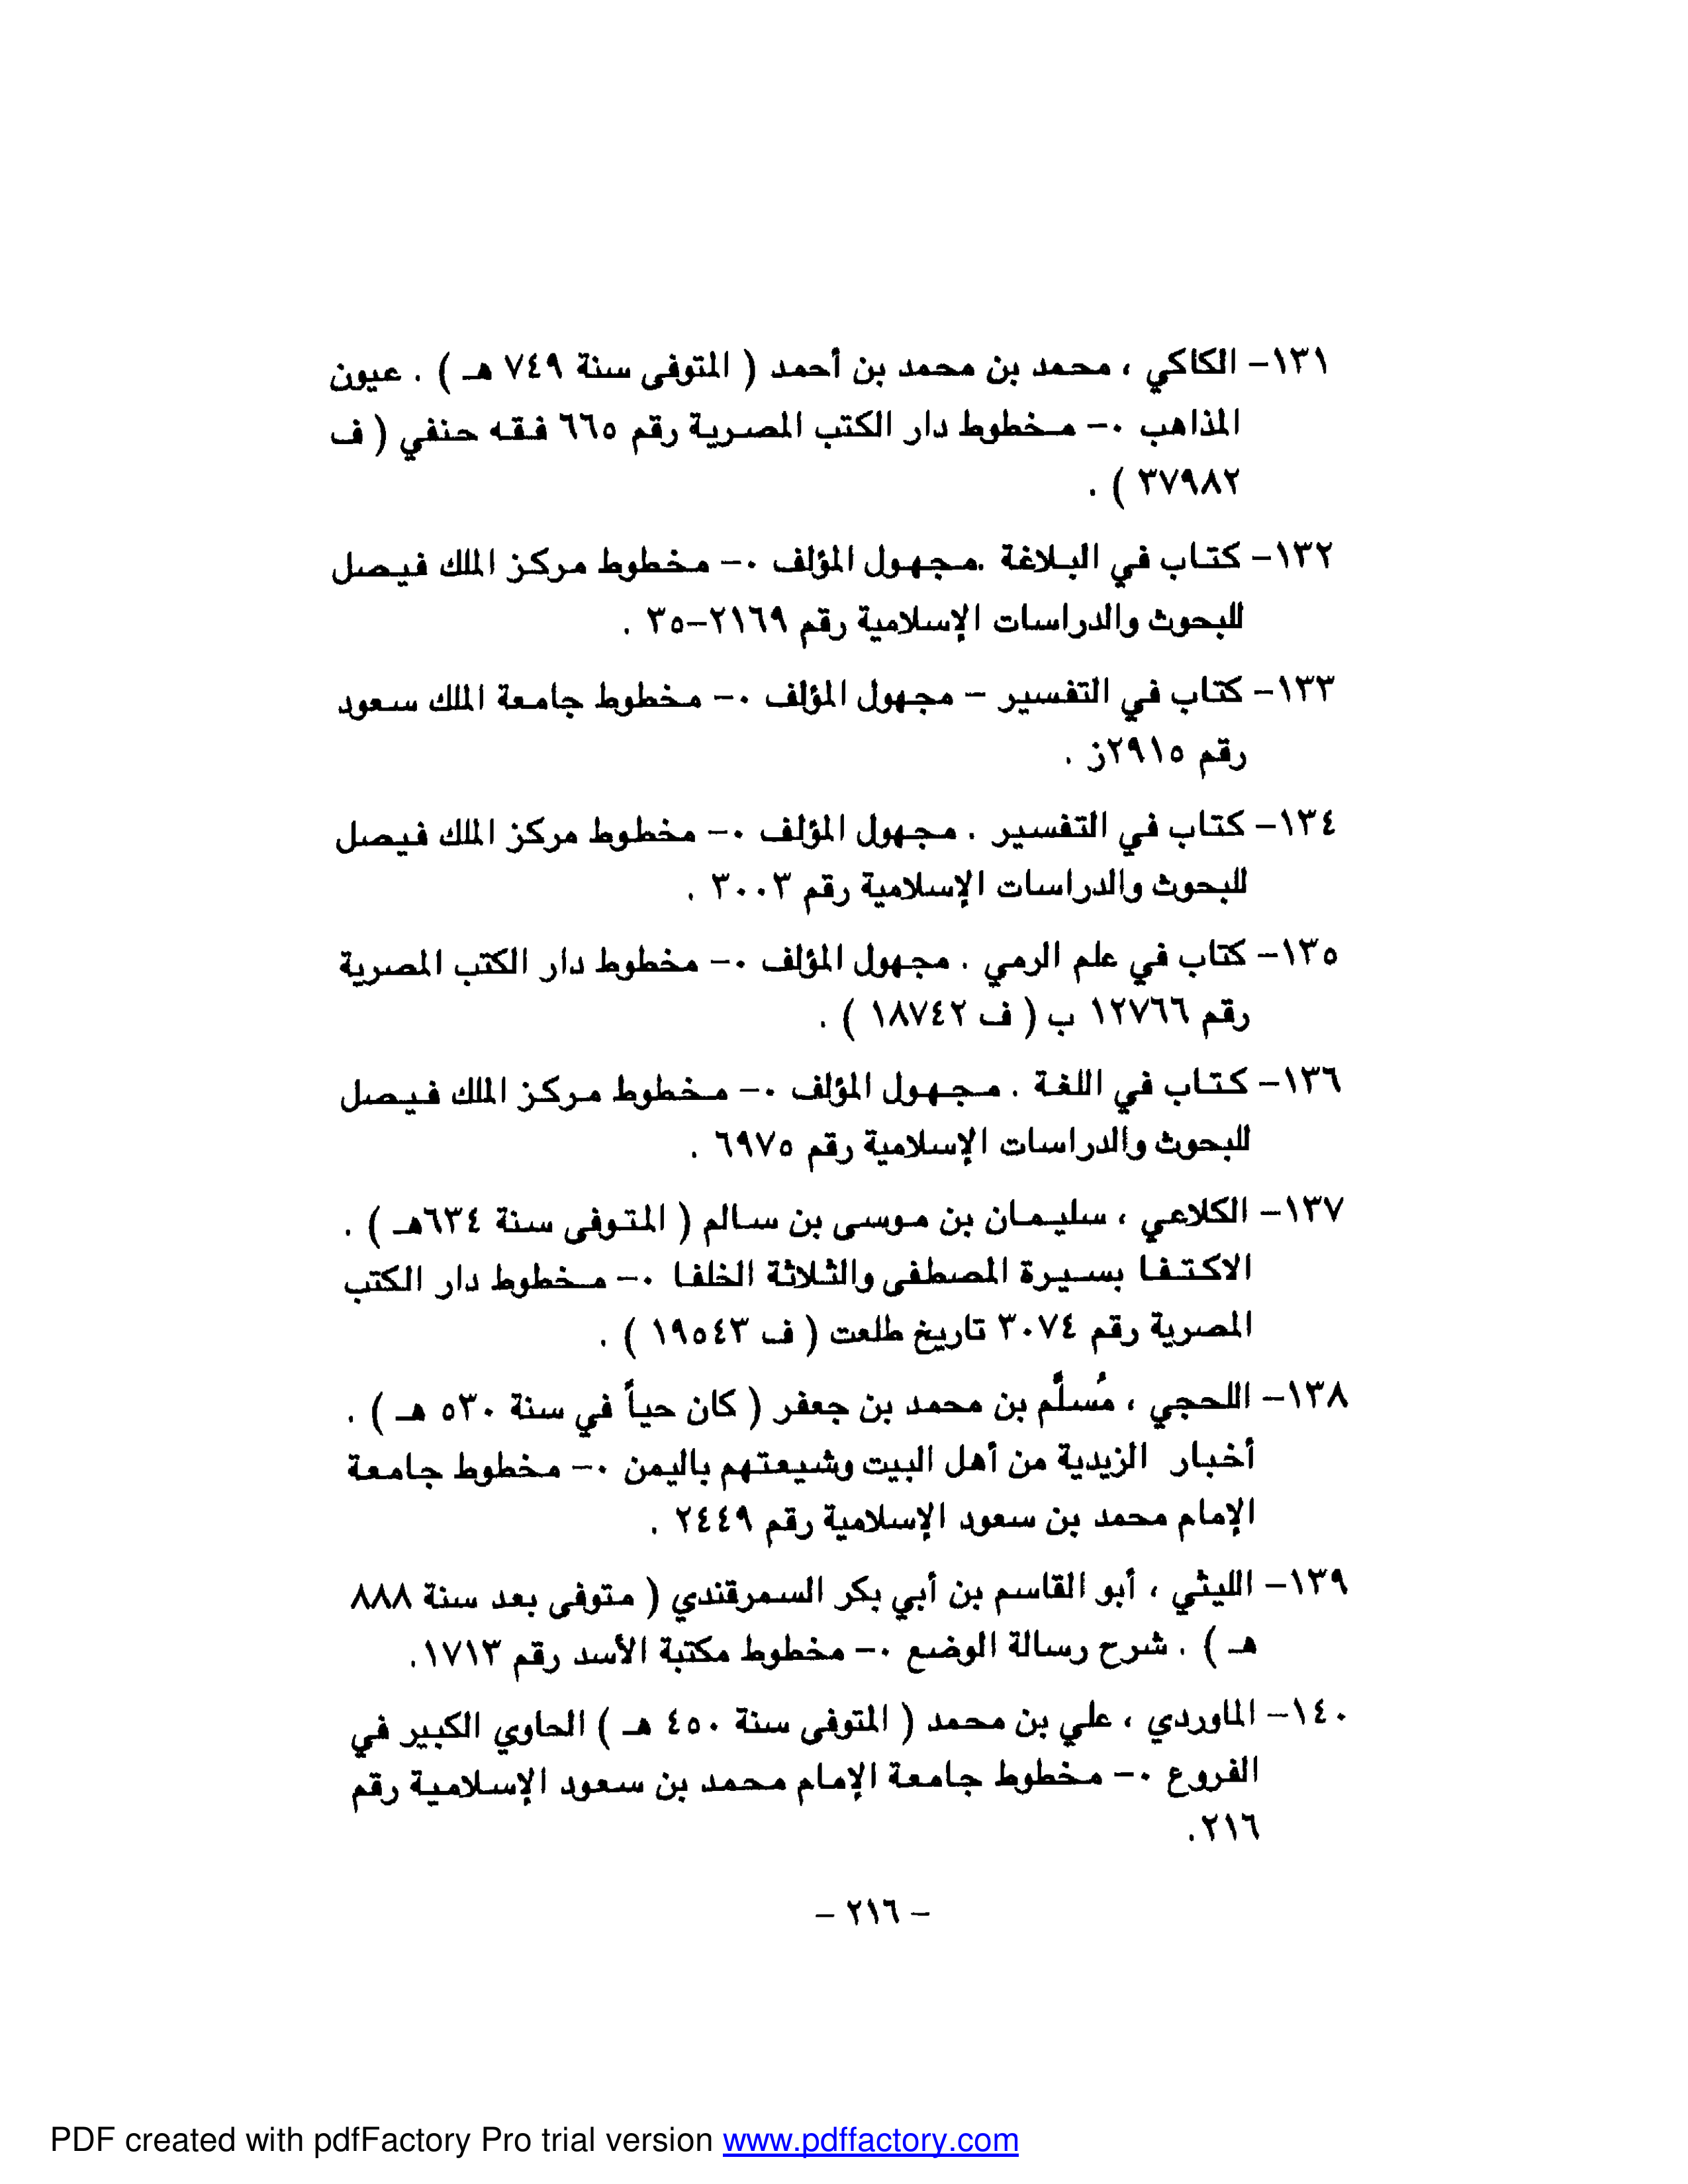 ١٣١- الكاكي ، محمد بن محمد بن أحمد ( المتوفى سنة ٧٤٩ هـ ) . عيون
المذاهب ٠- مخطوط دار الكتب المصرية رقم ٦٦٥ فقه حنفي ( ف
٣٧٩٨٢ ) .
١٣٢- كتاب في البلاغة .مجهول المؤلف ٠- مخطوط مركز الملك فيصل
للبحوث والدراسات الإسلامية رقم ٢١٦٩-٣٥ .
١٣٣- كتاب في التفسير - مجهول المؤلف ٠- مخطوط جامعة الملك سعود
رقم ٢٩١٥ز .
١٣٤- كتاب في التفسير . مجهول المؤلف ٠- مخطوط مركز الملك فيصل
للبحوث والدراسات الإسلامية رقم ٣٠٠٣ .
١٣٥- كتاب في علم الرمي . مجهول المؤلف ٠- مخطوط دار الكتب المصرية
رقم ١٢٧٦٦ ب ( ف ١٨٧٤٢ ) .
١٣٦- كتاب في اللغة . مجهول المؤلف ٠- مخطوط مركز الملك فيصل
للبحوث والدراسات الإسلامية رقم ٦٩٧٥ .
١٣٧- الكلاعي ، سليمان بن موسى بن سالم ( المتوفى سنة ٦٣٤هـ ) .
الاكتفا بسيرة المصطفى والثلاثة الخلفا ٠- مخطوط دار الكتب
المصرية رقم ٣٠٧٤ تاريخ طلعت ( ف ١٩٥٤٣ ) .
١٣٨- اللحجي ، مُسلَّم بن محمد بن جعفر ( كان حياً في سنة ٥٣٠ هـ ) .
أخبار الزيدية من أهل البيت وشيعتهم باليمن ٠- مخطوط جامعة
الإمام محمد بن سعود الإسلامية رقم ٢٤٤٩ .
١٣٩- الليثي ، أبو القاسم بن أبي بكر السمرقندي ( متوفى بعد سنة ٨٨٨
هـ ) . شرح رسالة الوضع ٠- مخطوط مكتبة الأسد رقم ١٧١٣.
١٤٠- الماوردي ، علي بن محمد ( المتوفى سنة ٤٥٠ هـ ) الحاوي الكبير في
الفروع ٠- مخطوط جامعة الإمام محمد بن سعود الإسلامية رقم
٢١٦.
- ٢١٦ -
PDF created with pdfFactory Pro trial version www.pdffactory.com